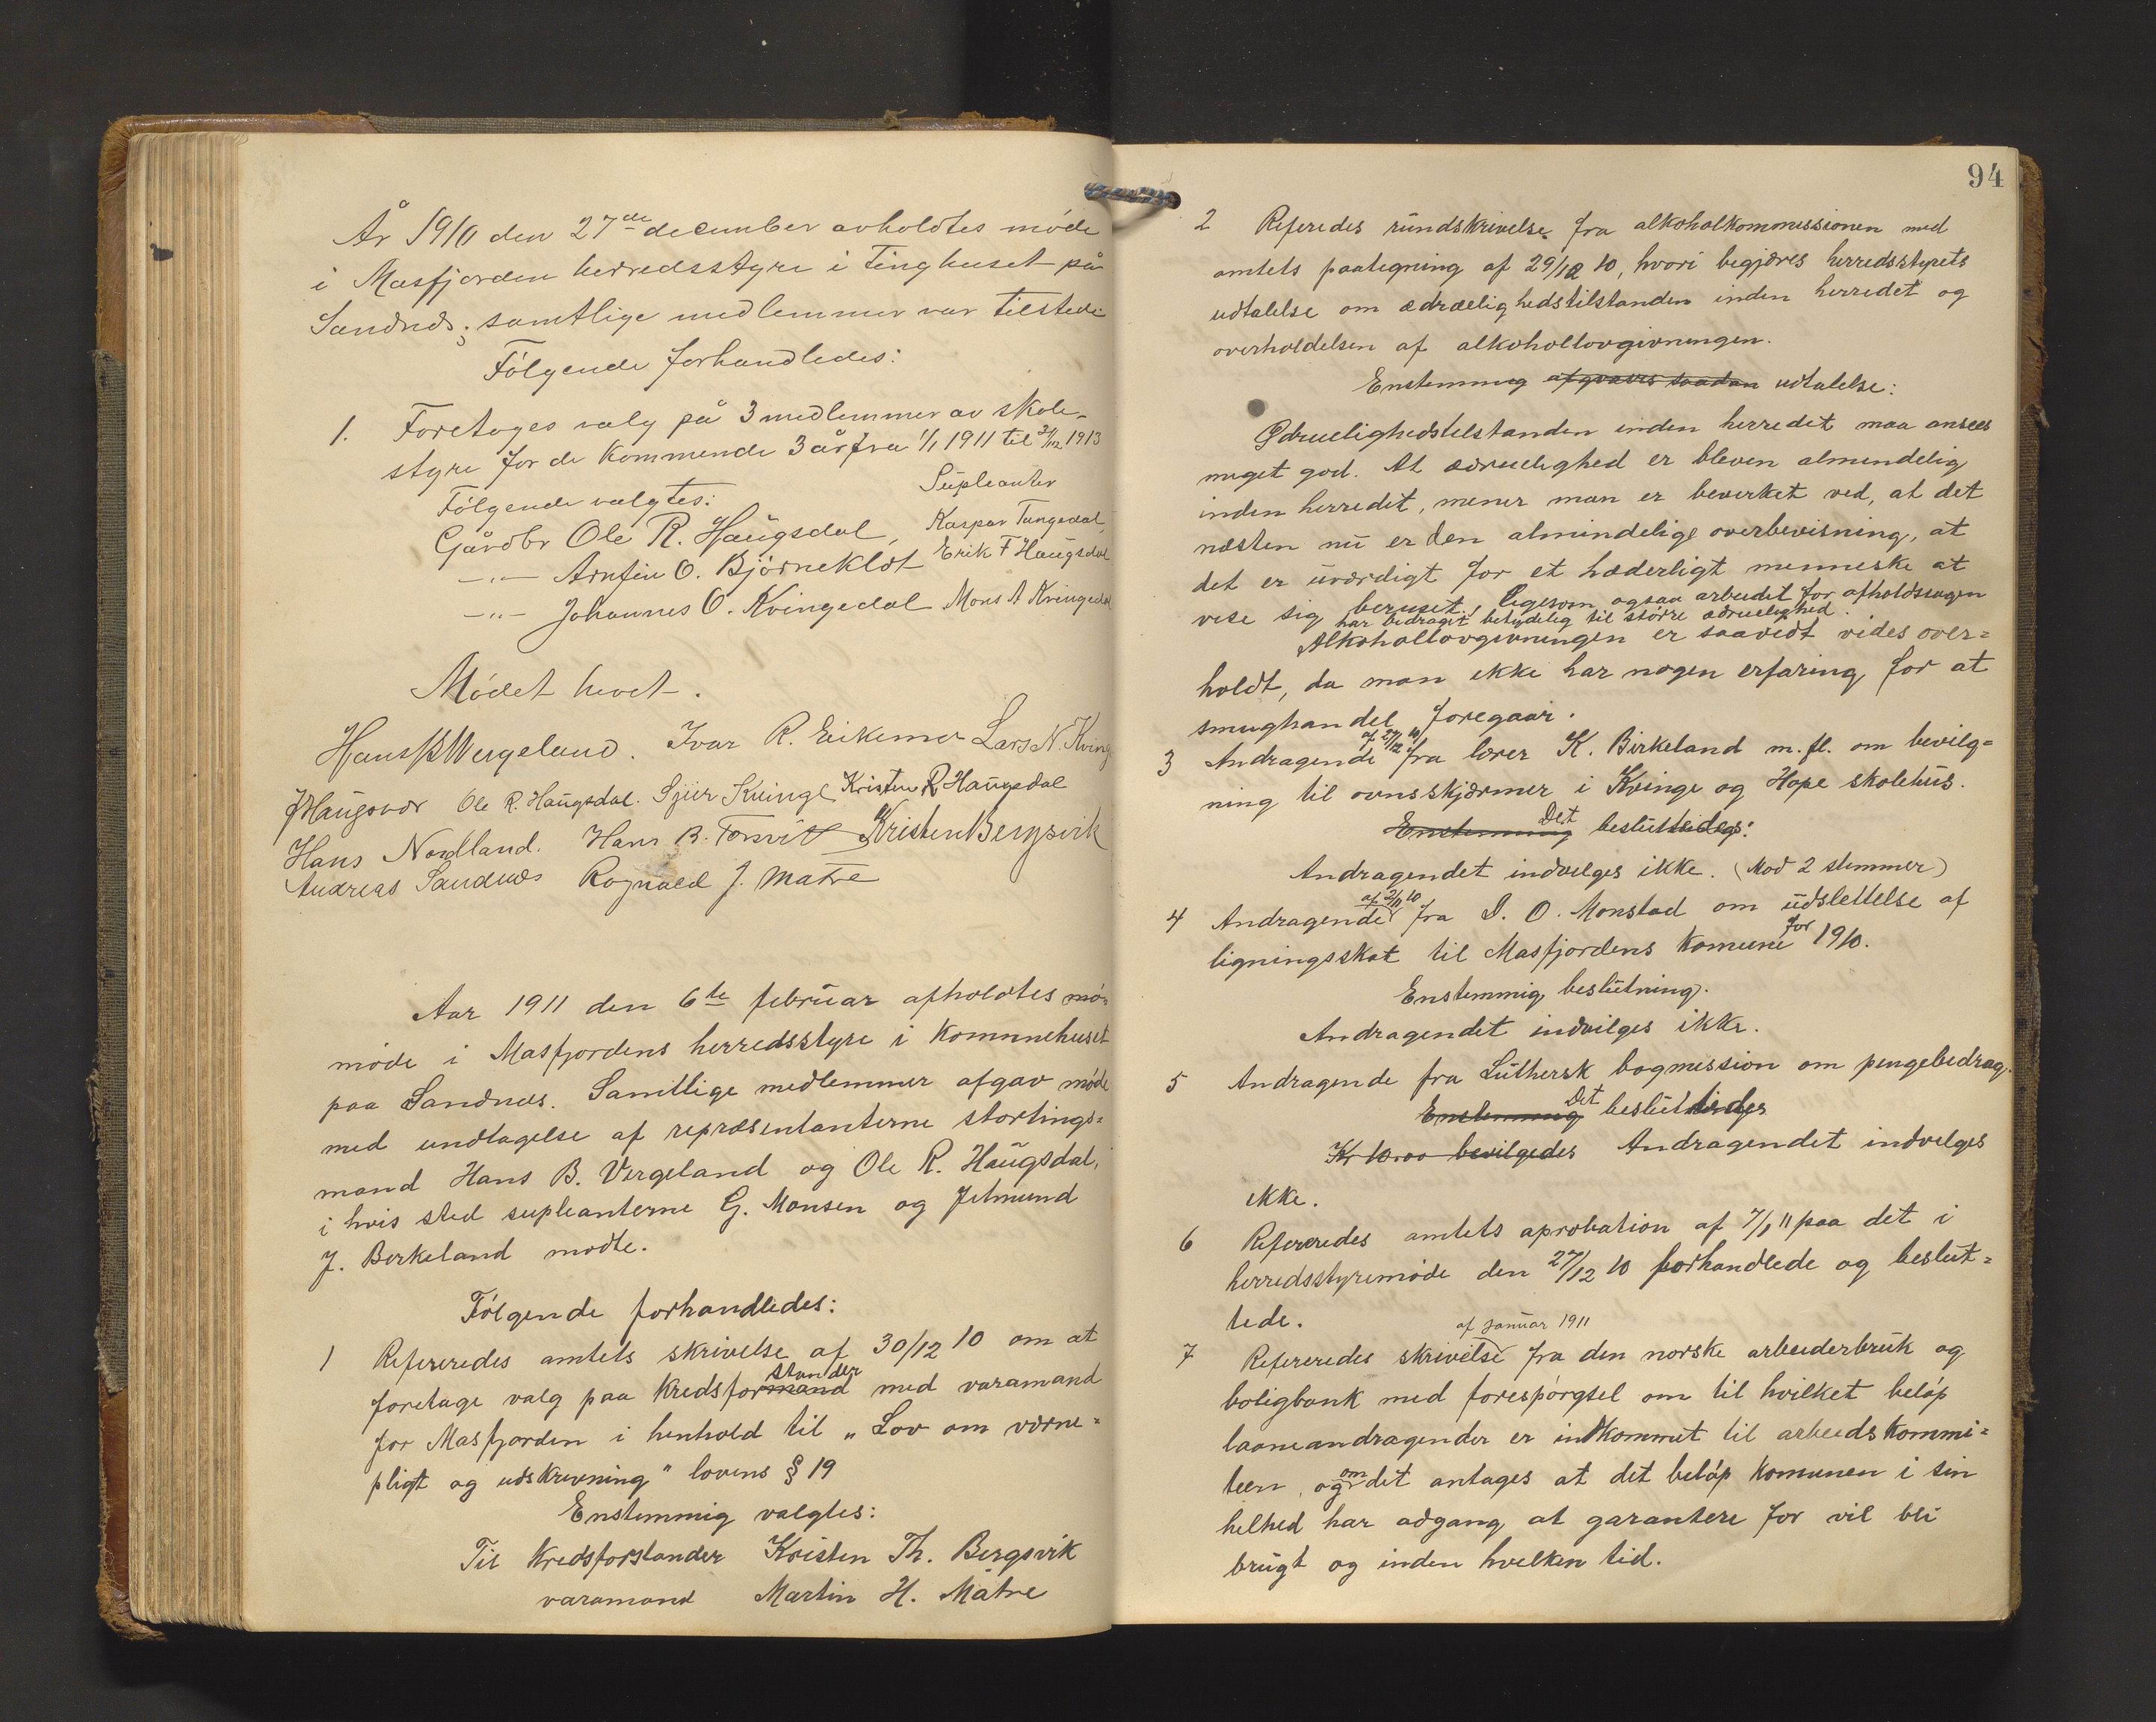 År 1910 den 27de december avholdtes møde
i Masfjorden herredsstyre i Tinghuset på
Sandnæs; samtlige medlemmer var tilstede
Følgende forhandledes:
1. Foretages valg på 3 medlemmer av skole-
styre for de kommende 3 år fra 1/1 1911 til 31/12 1913
Følgende valgtes: Supleanter
Gårdbr Ole R. Haugsdal, Kaspar Tangedal,
—"— Arnfin O. Bjørneklet Erik F Haugsdal
—"— Johannes O. Kvingedal Mons A Kvingedal
Mødet hevet.
Hans B Wergeland. Ivar R. Eikemo Lars N. Kvinge
Haugsvær Ole R. Haugsdal. Sjur Kvinge Kristen R Haugsdal
Hans Nordland. Hans B. Kristen Bergsvik
Andreas Sandnæs Rognald J. Matre
Aar 1911 den 6te februar afholdtes mø-
møde i Masfjordens herredsstyre i Kommnehuset
paa Sandnæs. Samtlige medlemmer afgav møde
med undtagelse af repræsentanterne stortings=
mand Hans B. Vergeland og Ole R. Haugsdal,
i hvis sted supleanterne G. Monsen og Jetmund
J. Berkeland mødte.
Følgende forhandledes:
1 Refereredes amtets skrivelse af 30/12 10 om at
foretage valg paa Kredsformand stander med varamand
for Masfjorden i henhold til „Lov om værne=
pligt og udskrivning" lovens § 19
Enstemmig valgtes:
Til Kredsforstander Kristen Th. Bergsvik
varamand Martin H. Matre
94
2 Referedes rundskrivelse fra alkoholkommissionen med
amtets paategning af 29/12 10, hvori begjæres herredsstyrets
udtalelse om ædruelighedstilstanden inden herredet og
overholdelsen af alkohollovgivningen.
Enstemmig afgaves saadan udtalelse:
Ædruelighedstilstanden inden herredet maa ansees
meget god. At ædruelighed er bleven almindelig
inden herredet, mener man er bevirket ved, at det
næsten nu er den almindelige overbevisning, at
det er uværdigt for et hæderligt menneske at
vise sig beruset, ligesom ogsaa arbeidet for afholdssagen
har bedraget betydelig til større ædruelighed.
Alkohollovgivningen er saavidt vides over=
holdt, da man ikke har nogen erfaring for at
smughandel foregaar.
3 Andragende af 27/12 10 fra lærer K. Birkeland m. fl. om bevilg=
ning til ovnsskjærmer i Kvinge og Hope skolehus.
Enstemmig Det besluttedes:
Andragendet indvilges ikke. (Mod 2 stemmer)
4 Andragende af 2/11 10 fra D. O. Monstad om udslettelse af
ligningsskat til Masfjordens Komune for 1910.
Enstemmig beslutning.
Andragendet indvilges ikke.
5 Andragende fra Luthersk bogmission om pengebedrag.
Enstemmig Det besluttedes
Kr 10.00 bevilgedes Andragendet indvilges
ikke.
6 Refereredes amtets aprobation af 7/1 11 paa det i
herredsstyremøde den 27/12 10 forhandlede og beslut=
tede.
7 Refereredes skrivelse af januar 1911 fra den norske arbeiderbruk og
boligbank med forespørgsel om til hvilket beløp
laaneandragender er indkommet til arbeidskommi=
teen, og om det antages at det beløp Komunen i sin
helhed har adgang at garantere for vil bli
brugt og inden hvelken tid.